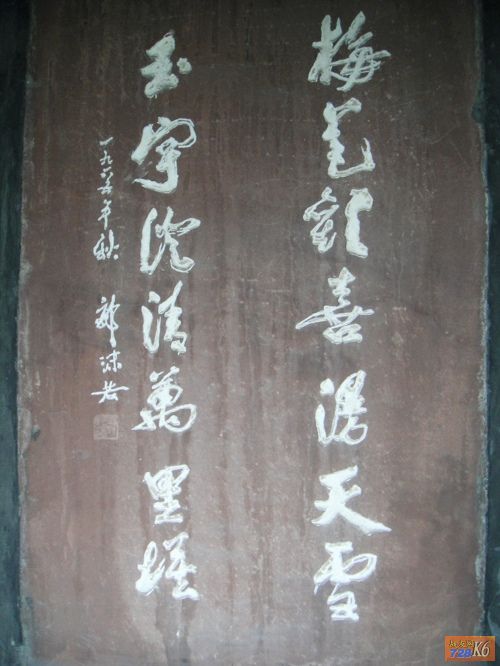 梅花歡喜漫天雪
玉宇澄清萬里埃
一九六五年秋 郭沫若
728K6